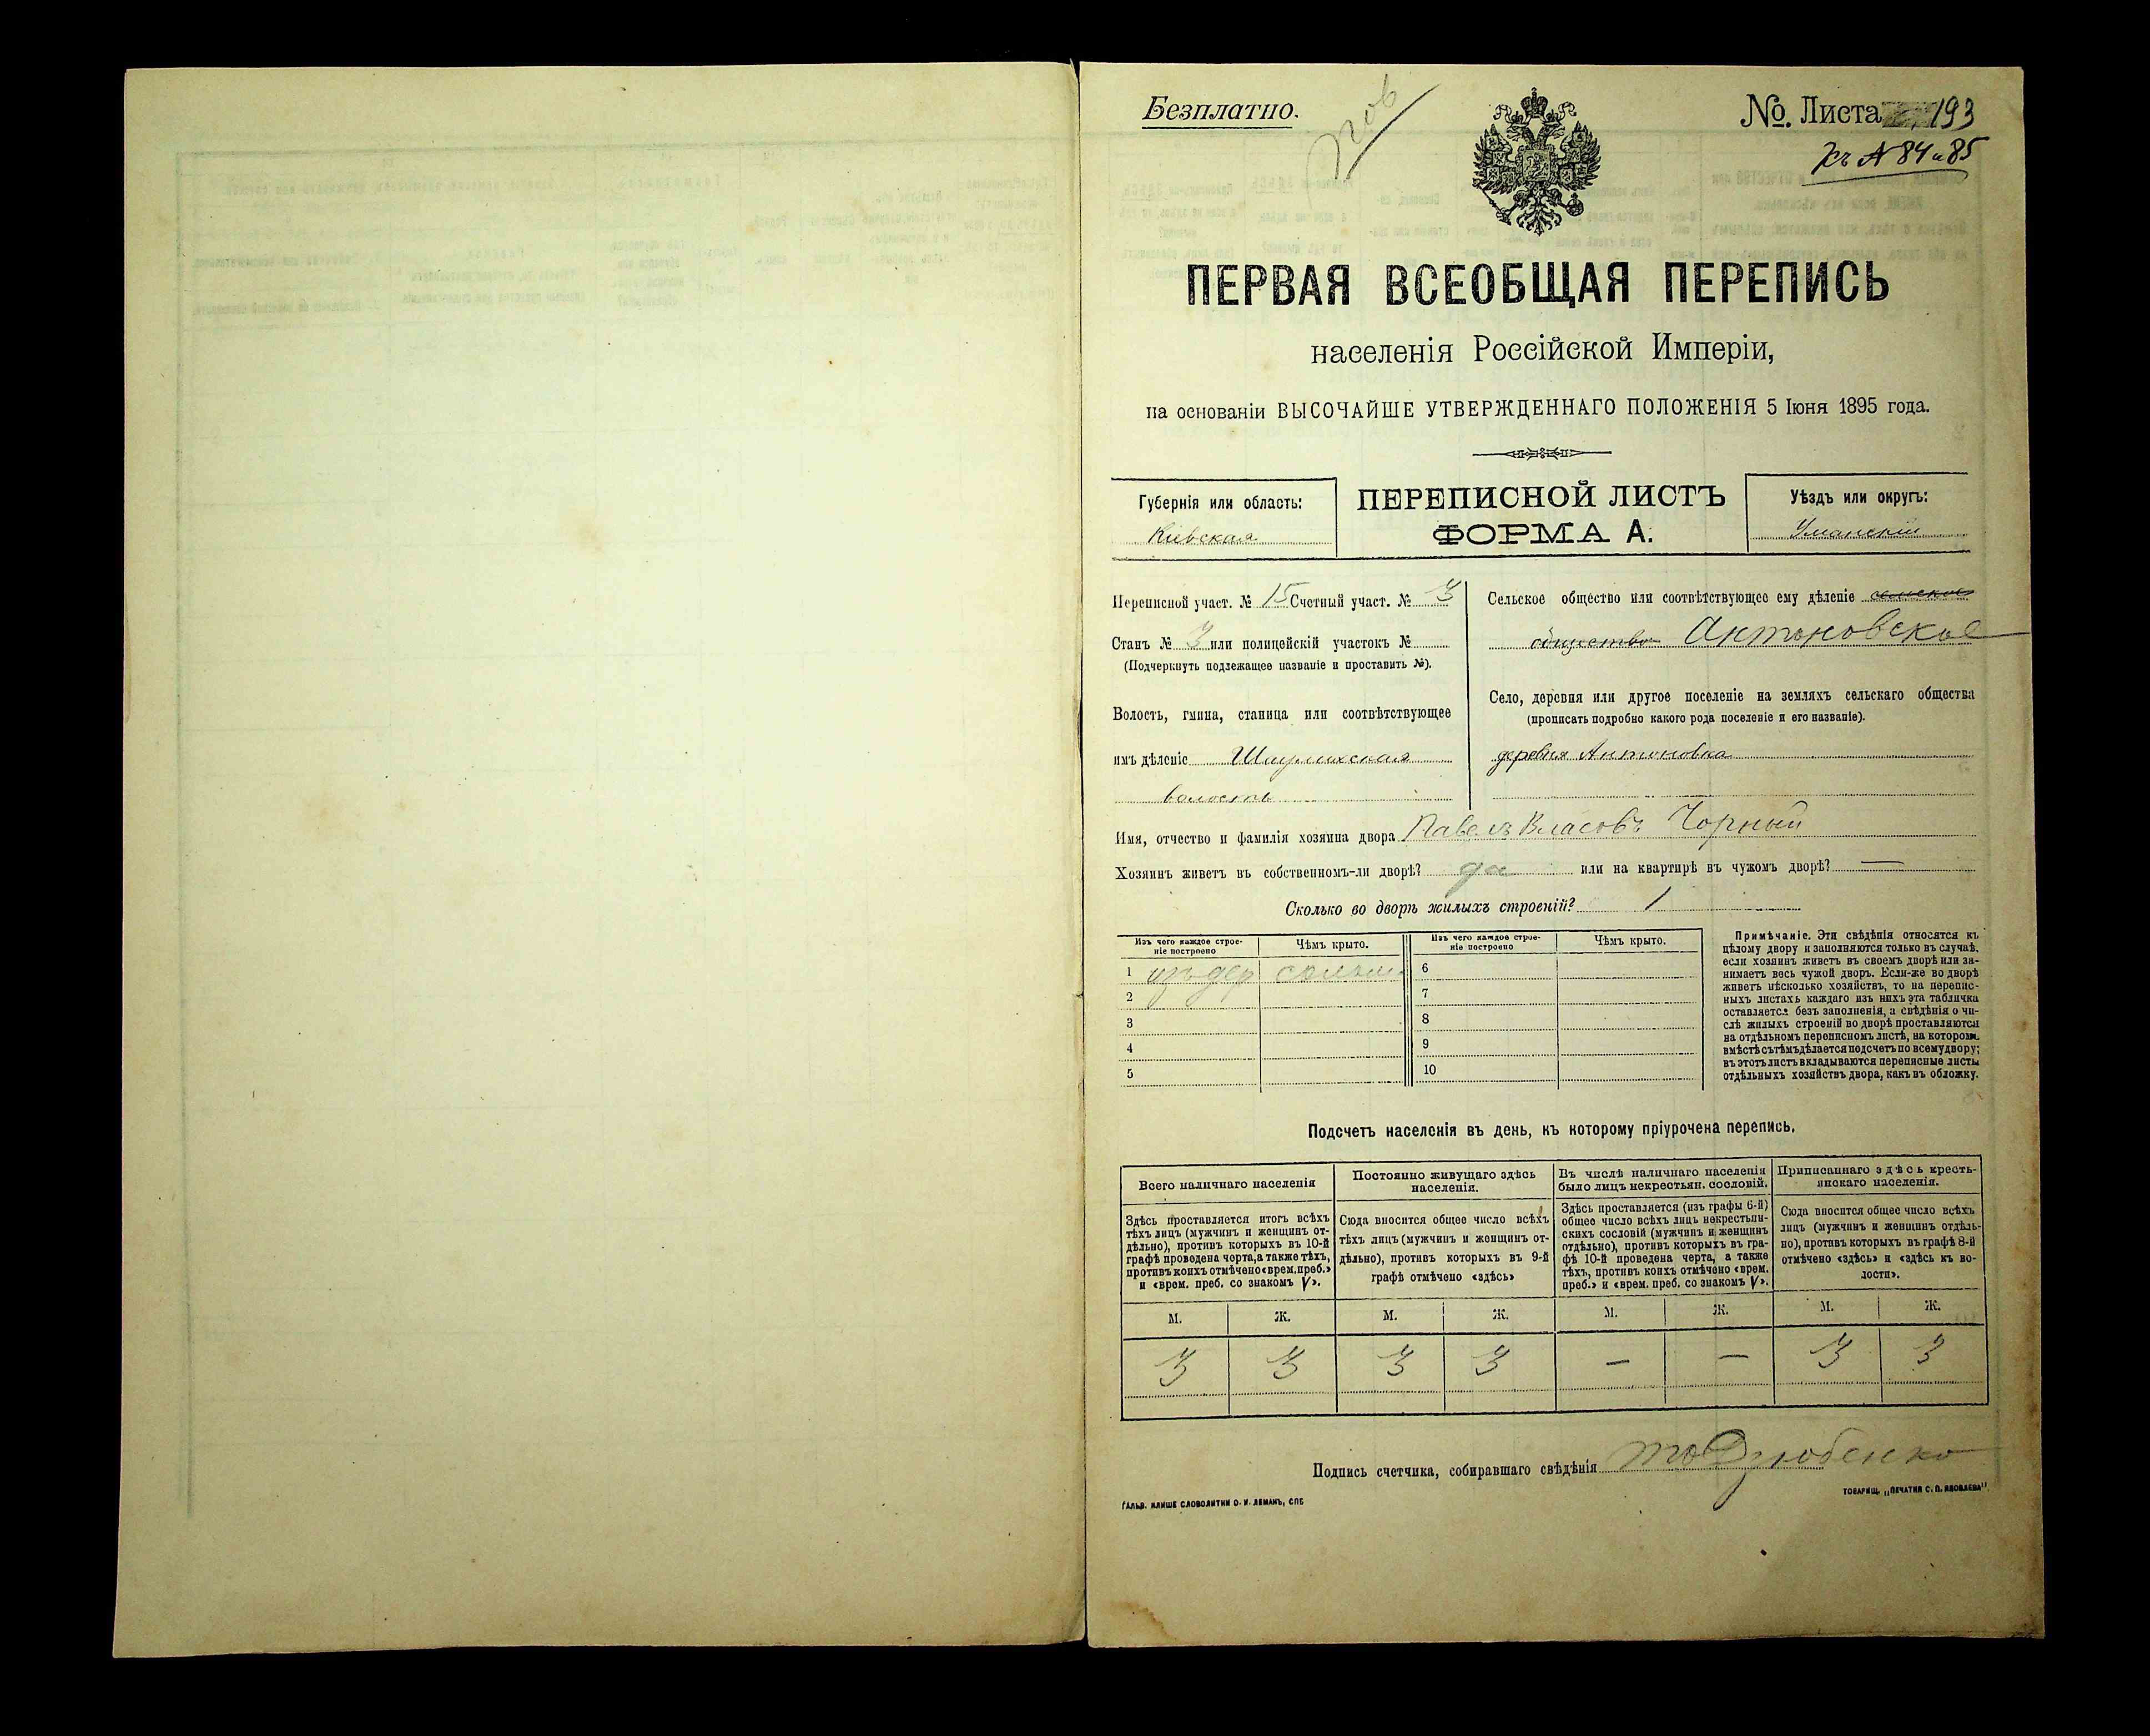 Безплатно.
№. Листа 193
Къ № 84 и 85
ПЕРВАЯ ВСЕОБЩАЯ ПЕРЕПИСЬ
населенія Россійской Имперіи,
на основаніи ВЫСОЧАЙШЕ УТВЕРЖДЕННАГО ПОЛОЖЕНІЯ 5 Іюня 1895 года.
Губернія или область:
Кіевская
ПЕРЕПИСНОЙ ЛИСТЪ
ФОРМА А.
Уѣздъ или округъ:
Уманскій
Переписной участ. № 15 Счетный участ. № 3
Станъ № 3 или полицейскій участокъ №
(Подчеркнуть подлежащее названіе и проставить №).
Волость, гмина, станица или соотвѣтствующее
имъ дѣленіе
волость
Сельское общество или соотвѣтствующее ему дѣленіе сельское
общество Антоновское
Село, деревня или другое поселеніе на земляхъ сельскаго общества
(прописать подробно какого рода поселеніе и его названіе).
деревня Антоновка
Имя, отчество и фамилія хозяина двора Павелъ Власовъ Чорный
Хозяинъ живетъ въ собственномъ-ли дворѣ? да или на квартирѣ въ чужомъ дворѣ? —
Сколько во дворѣ жилыхъ строеній? 1
Изъ чего каждое строе-
ніе построено
Чѣмъ крыто.
1 изъ дер солом
2
3
4
5
Изъ чего каждое строе-
ніе построено
Чѣмъ крыто.
6
7
8
9
10
Примѣчаніе. Эти свѣдѣнія относятся къ
цѣлому двору и заполняются только въ случаѣ,
если хозяинъ живетъ въ своемъ дворѣ или за-
нимаетъ весь чужой дворъ. Если-же во дворѣ
живетъ нѣсколько хозяйствъ, то на перепис-
ныхъ листахъ каждаго изъ нихъ эта табличка
оставляется безъ заполненія, а свѣдѣнія о чи-
слѣ жилыхъ строеній во дворѣ проставляются
на отдѣльномъ переписномъ листѣ, на которомъ
вмѣстѣ съ тѣмъ дѣлается подсчетъ по всему двору;
въ этотъ листъ вкладываются переписные листы
отдѣльныхъ хозяйствъ двора, какъ въ обложку.
Подсчетъ населенія въ день, къ которому пріурочена перепись.
Всего наличнаго населенія
Здѣсь проставляется итогъ всѣхъ
тѣхъ лицъ (мужчинъ и женщинъ от-
дѣльно), противъ которыхъ въ 10-й
графѣ проведена черта, а также тѣхъ,
противъ коихъ отмѣчено «врем. преб.»
и «врем. преб. со знакомъ V».
Постоянно живущаго здѣсь
населенія.
Сюда вносится общее число всѣхъ
тѣхъ лицъ (мужчинъ и женщинъ от-
дѣльно), противъ которыхъ въ 9-й
графѣ отмѣчено «здѣсь»
Въ числѣ наличнаго населенія
было лицъ некрестьян. сословій.
Здѣсь проставляется (изъ графы 6-й)
общее число всѣхъ лицъ некрестьян-
скихъ сословій (мужчинъ и женщинъ
отдѣльно), противъ которыхъ въ гра-
фѣ 10-й проведена черта, а также
тѣхъ, противъ коихъ отмѣчено «врем.
преб.» и «врем. преб. со знакомъ V».
Приписаннаго здѣсь кресть-
янскаго населенія.
Сюда вносится общее число всѣхъ
лицъ (мужчинъ и женщинъ отдѣль-
но), противъ которыхъ въ графѣ 8-й
отмѣчено «здѣсь» и «здѣсь къ во-
лости».
М. Ж. М. Ж. М. Ж. М. Ж.
3 3 3 3 — — 3 3
Подпись счетчика, собиравшаго свѣдѣнія Дзюбенко
ГАЛЬВ. КЛИШЕ СЛОВОЛИТНИ О. И. ЛЕМАНЪ, СПБ
ТОВАРИЩ. „ПЕЧАТНЯ С. П. ЯКОВЛЕВА“.